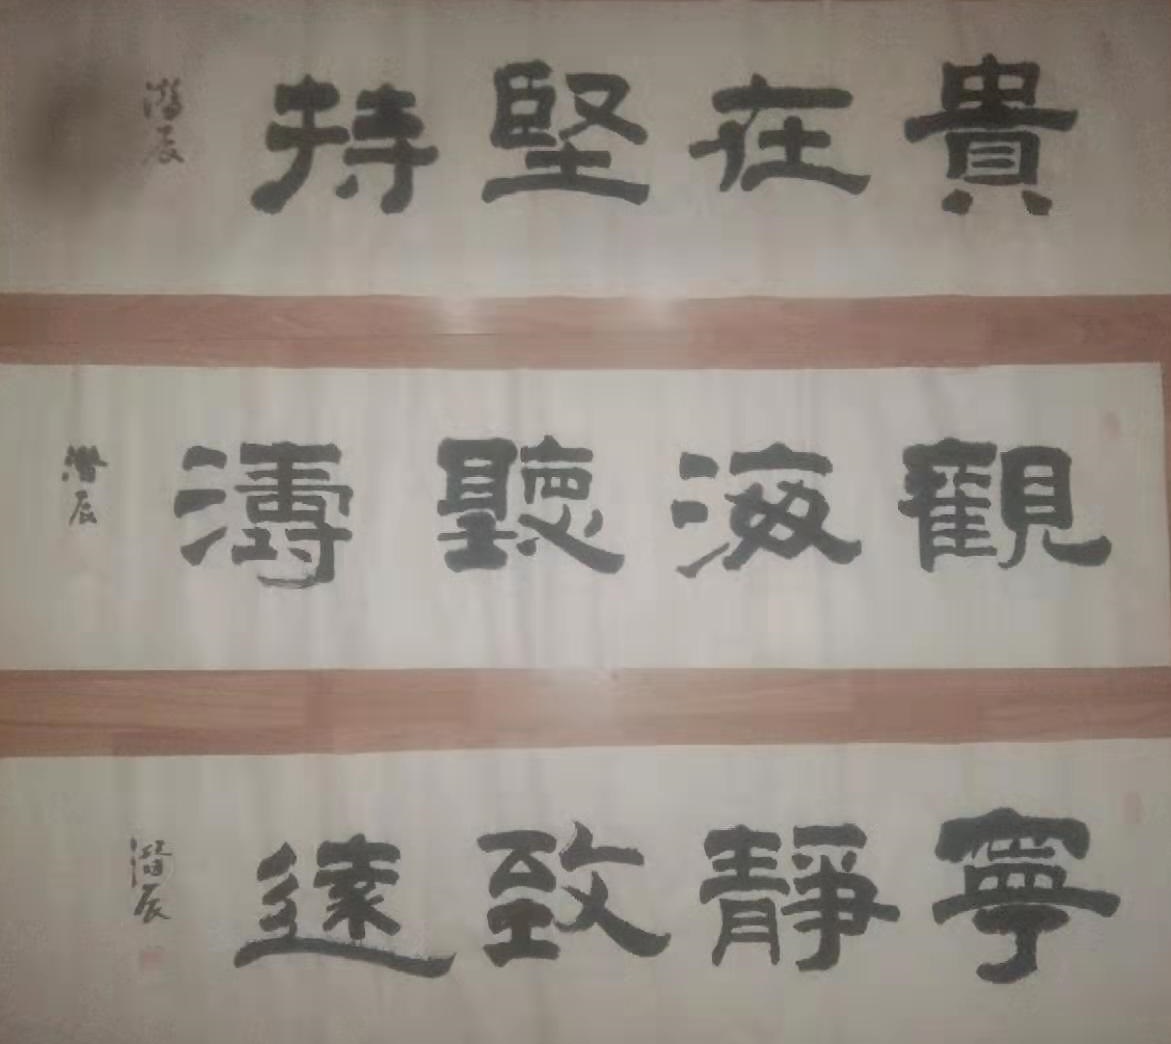 貴在堅持
潛辰
觀海聽濤
潛辰
寧靜致遠
潛辰